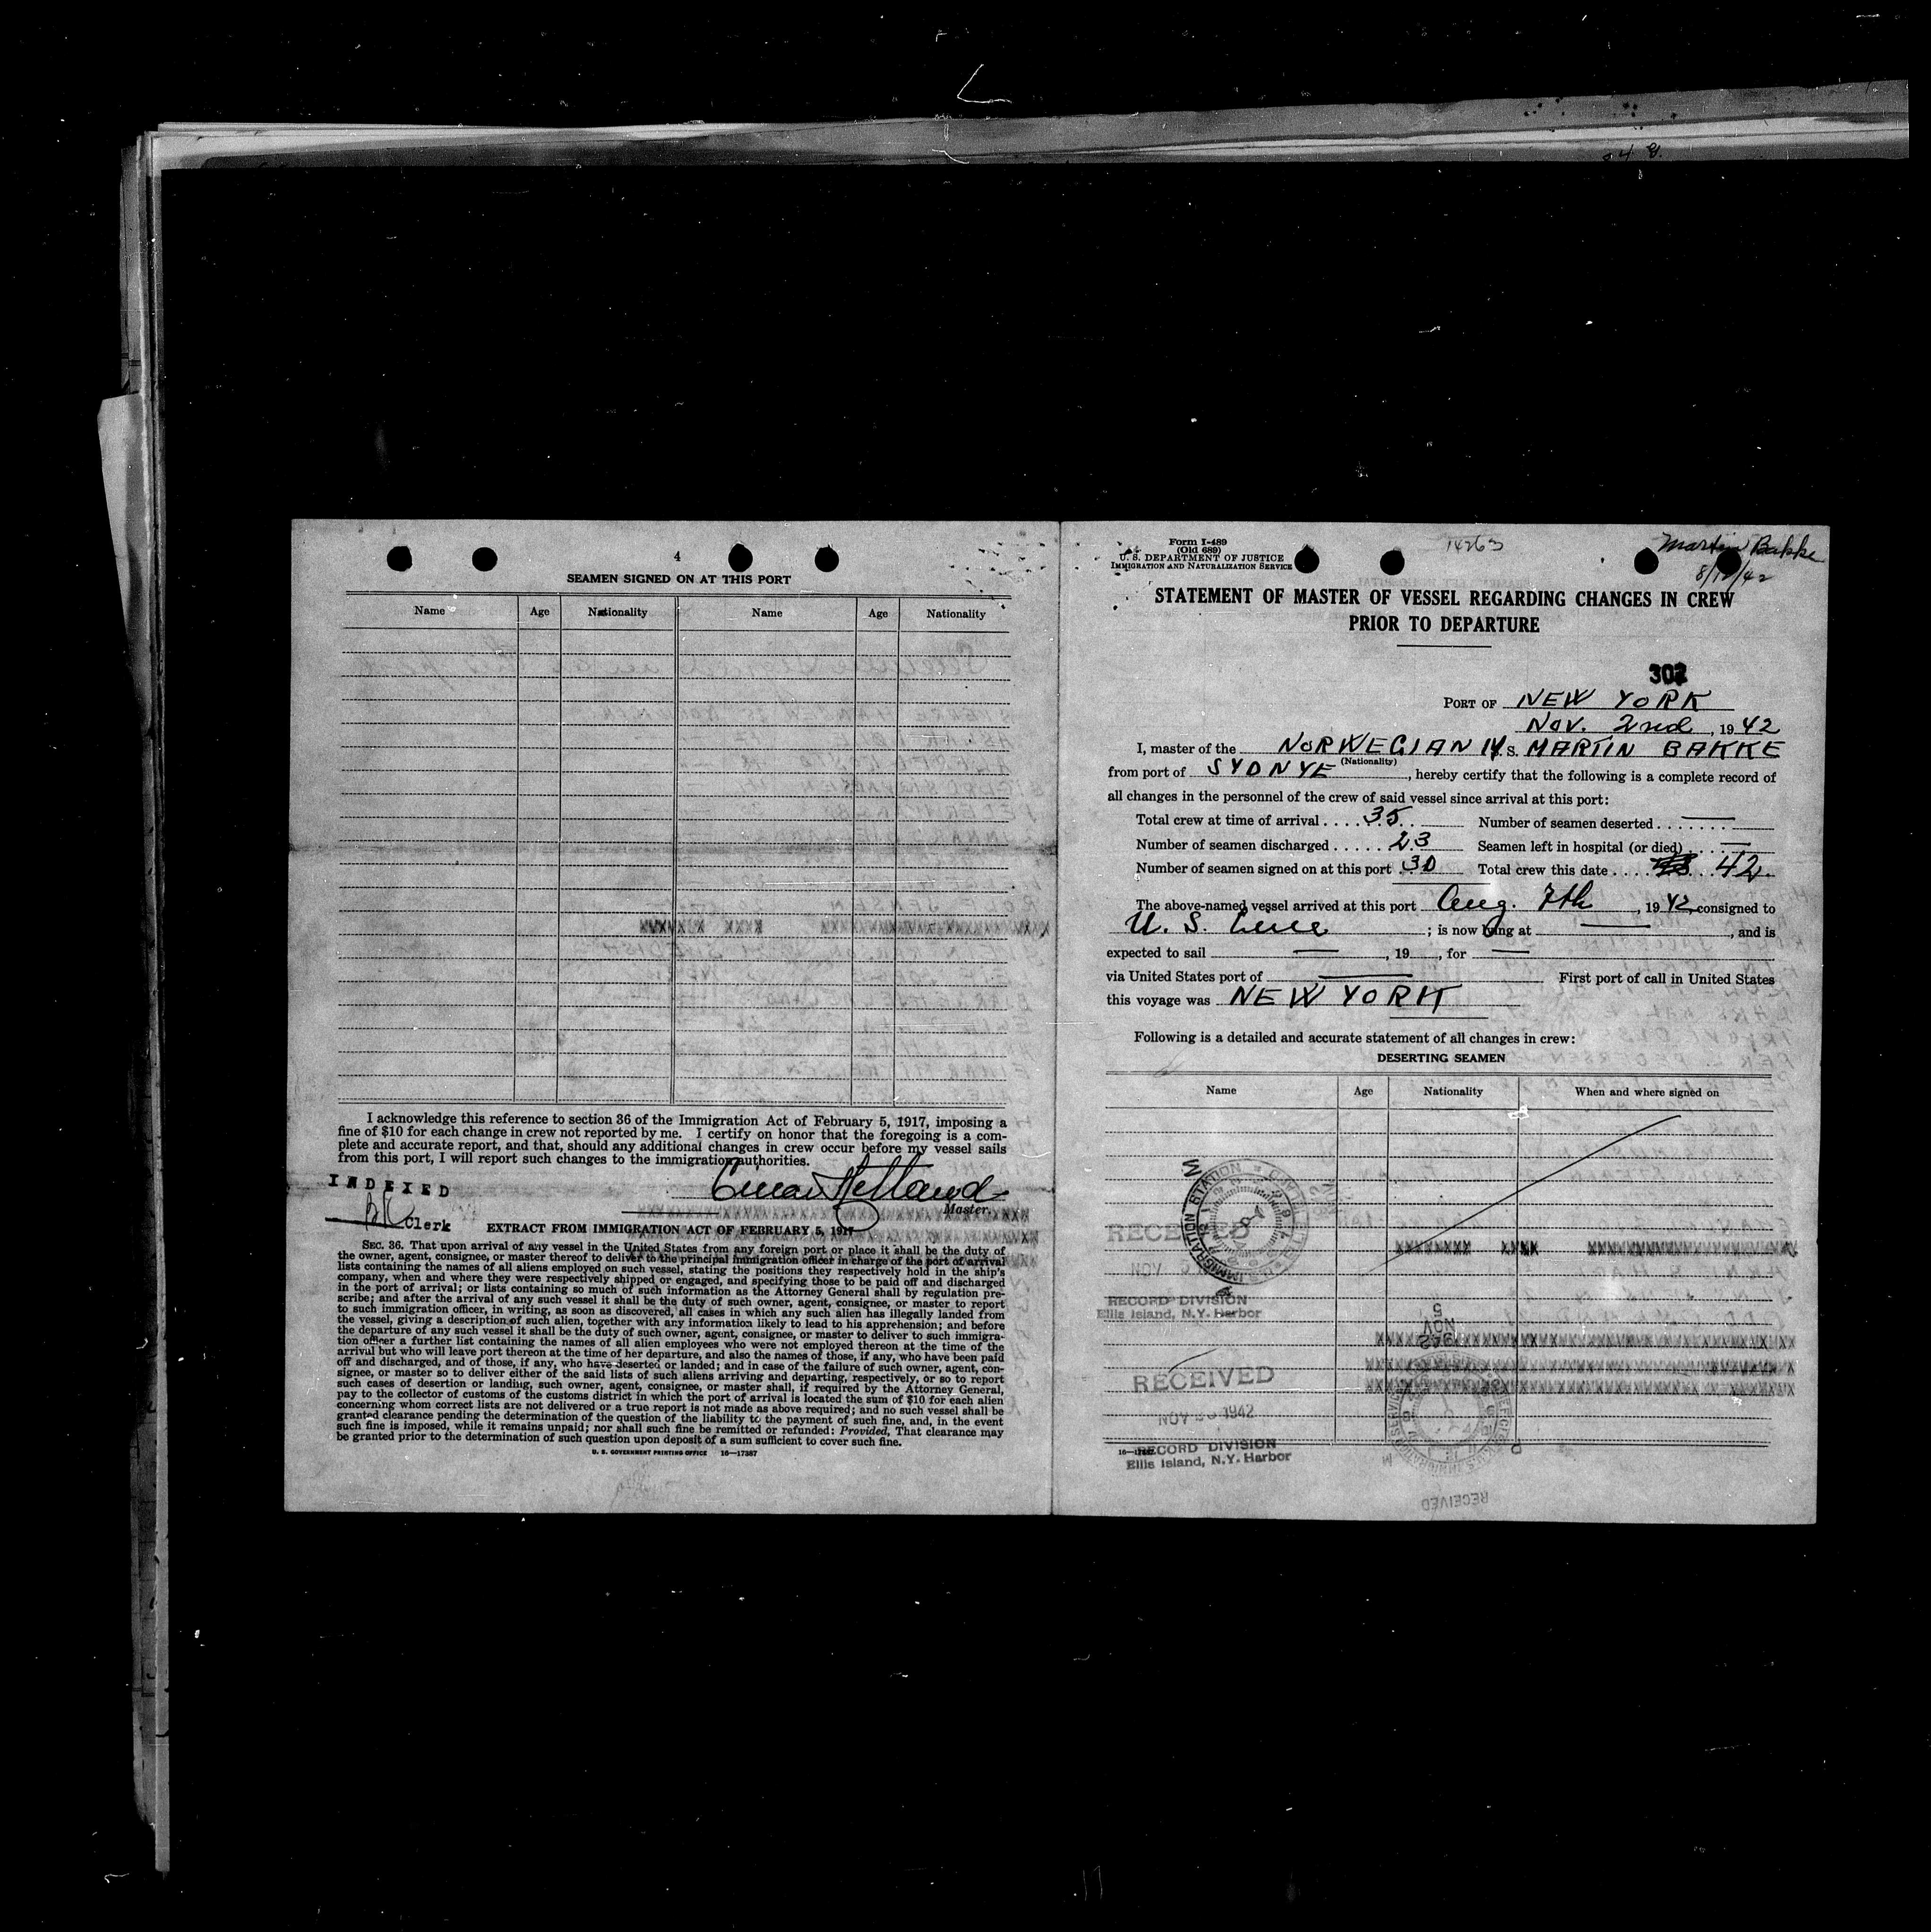 4
SEAMEN SIGNED ON AT THIS PORT
Name Age Nationality Name Age Nationality
I acknowledge this reference to section 36 of the Immigration Act of February 5, 1917, imposing a
fine of $10 for each change in crew not reported by me. I certify on honor that the foregoing is a com-
plete and accurate report, and that, should any additional changes in crew occur before my vessel sails
from this port, I will report such changes to the immigration authorities.
INDEXED
Master.
Clerk
EXTRACT FROM IMMIGRATION ACT OF FEBRUARY 5, 1917
SEC. 36. That upon arrival of any vessel in the United States from any foreign port or place it shall be the duty of
the owner, agent, consignee, or master thereof to deliver to the principal immigration officer in charge of the port of arrival
lists containing the names of all aliens employed on such vessel, stating the positions they respectively hold in the ship's
company, when and where they were respectively shipped or engaged, and specifying those to be paid off and discharged
in the port of arrival; or lists containing so much of such information as the Attorney General shall by regulation pre-
scribe; and after the arrival of any such vessel it shall be the duty of such owner, agent, consignee, or master to report
to such immigration officer, in writing, as soon as discovered, all cases in which any such alien has illegally landed from
the vessel, giving a description of such alien, together with any information likely to lead to his apprehension; and before
the departure of any such vessel it shall be the duty of such owner, agent, consignee, or master to deliver to such immigra-
tion officer a further list containing the names of all alien employees who were not employed thereon at the time of the
arrival but who will leave port thereon at the time of her departure, and also the names of those, if any, who have been paid
off and discharged, and of those, if any, who have deserted or landed; and in case of the failure of such owner, agent, con-
signee, or master so to deliver either of the said lists of such aliens arriving and departing, respectively, or so to report
such cases of desertion or landing, such owner, agent, consignee, or master shall, if required by the Attorney General,
pay to the collector of customs of the customs district in which the port of arrival is located the sum of $10 for each alien
concerning whom correct lists are not delivered or a true report is not made as above required; and no such vessel shall be
granted clearance pending the determination of the question of the liability to the payment of such fine, and, in the event
such fine is imposed, while it remains unpaid; nor shall such fine be remitted or refunded: Provided, That clearance may
be granted prior to the determination of such question upon deposit of a sum sufficient to cover such fine.
U. S. GOVERNMENT PRINTING OFFICE 16—17387
Form I-489
(Old 689)
U. S. DEPARTMENT OF JUSTICE
IMMIGRATION AND NATURALIZATION SERVICE
14263
Martin Bakke
8/12/42
STATEMENT OF MASTER OF VESSEL REGARDING CHANGES IN CREW
PRIOR TO DEPARTURE
PORT OF NEW YORK
NOV. 2nd, 1942
I, master of the NORWEGIAN M. S. MARTIN BAKKE
(Nationality)
from port of SYDNYE, hereby certify that the following is a complete record of
all changes in the personnel of the crew of said vessel since arrival at this port:
Total crew at time of arrival .... 35 Number of seamen deserted ....... —
Number of seamen discharged ..... 23 Seamen left in hospital (or died) .... —
Number of seamen signed on at this port 30 Total crew this date .... 42.
The above-named vessel arrived at this port Aug. 7th, 1942, consigned to
U. S. Line ; is now lying at —, and is
expected to sail —, 19 , for —
via United States port of — First port of call in United States
this voyage was NEW YORK
Following is a detailed and accurate statement of all changes in crew:
DESERTING SEAMEN
Name Age Nationality When and where signed on
RECEIVED
NOV
RECORD DIVISION
Ellis Island, N.Y. Harbor
NOV 5
1942
RECEIVED
NOV 1942
RECORD DIVISION
Ellis Island, N.Y. Harbor
RECEIVED